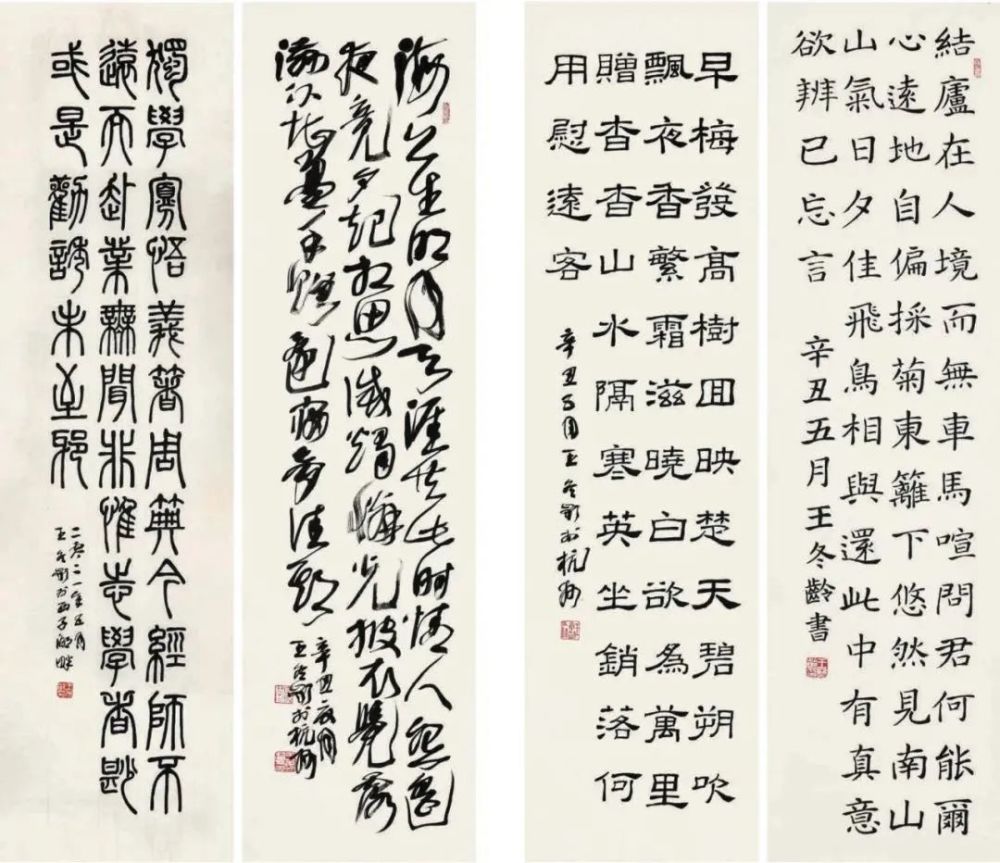 結廬在人境而無車馬喧問君何能爾
心遠地自偏採菊東籬下悠然見南山
山氣日夕佳飛鳥相與還此中有真意
欲辨已忘言
辛丑五月王冬齡書
早梅發高樹迥映楚天碧朔吹
飄夜香繁霜滋曉白欲為萬里
贈杳杳山水隔寒英坐銷落何
用慰遠客
辛丑五月王冬齡於杭州
海上生明月天涯共此時情人怨遙
夜竟夕起相思滅燭憐光披衣覺露
滋不堪盈手贈還寢夢佳期
辛丑五月王冬齡於杭州
獨學寡悟義著周典今經師不
遠而赴業無聞非惟志學者尠
或是勸誘未至邪
二〇二一年五月
王冬齡於西子湖畔